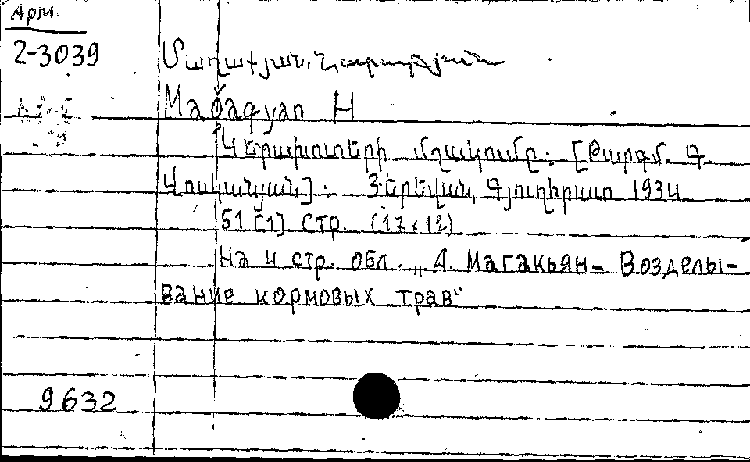 Арм.
2-3039
Մաղաքյան,
Магаqyan Н
Կերախոտերի մշակումը. [Թարգմ. Գ
Ոսկանյան]. Յերեվան, Գյուղհրատ 1934
51 [1] стр. (17x12)
На 4 стр. обл. „А. Магакьян - Возделы-
вание кормовых трав“
9632